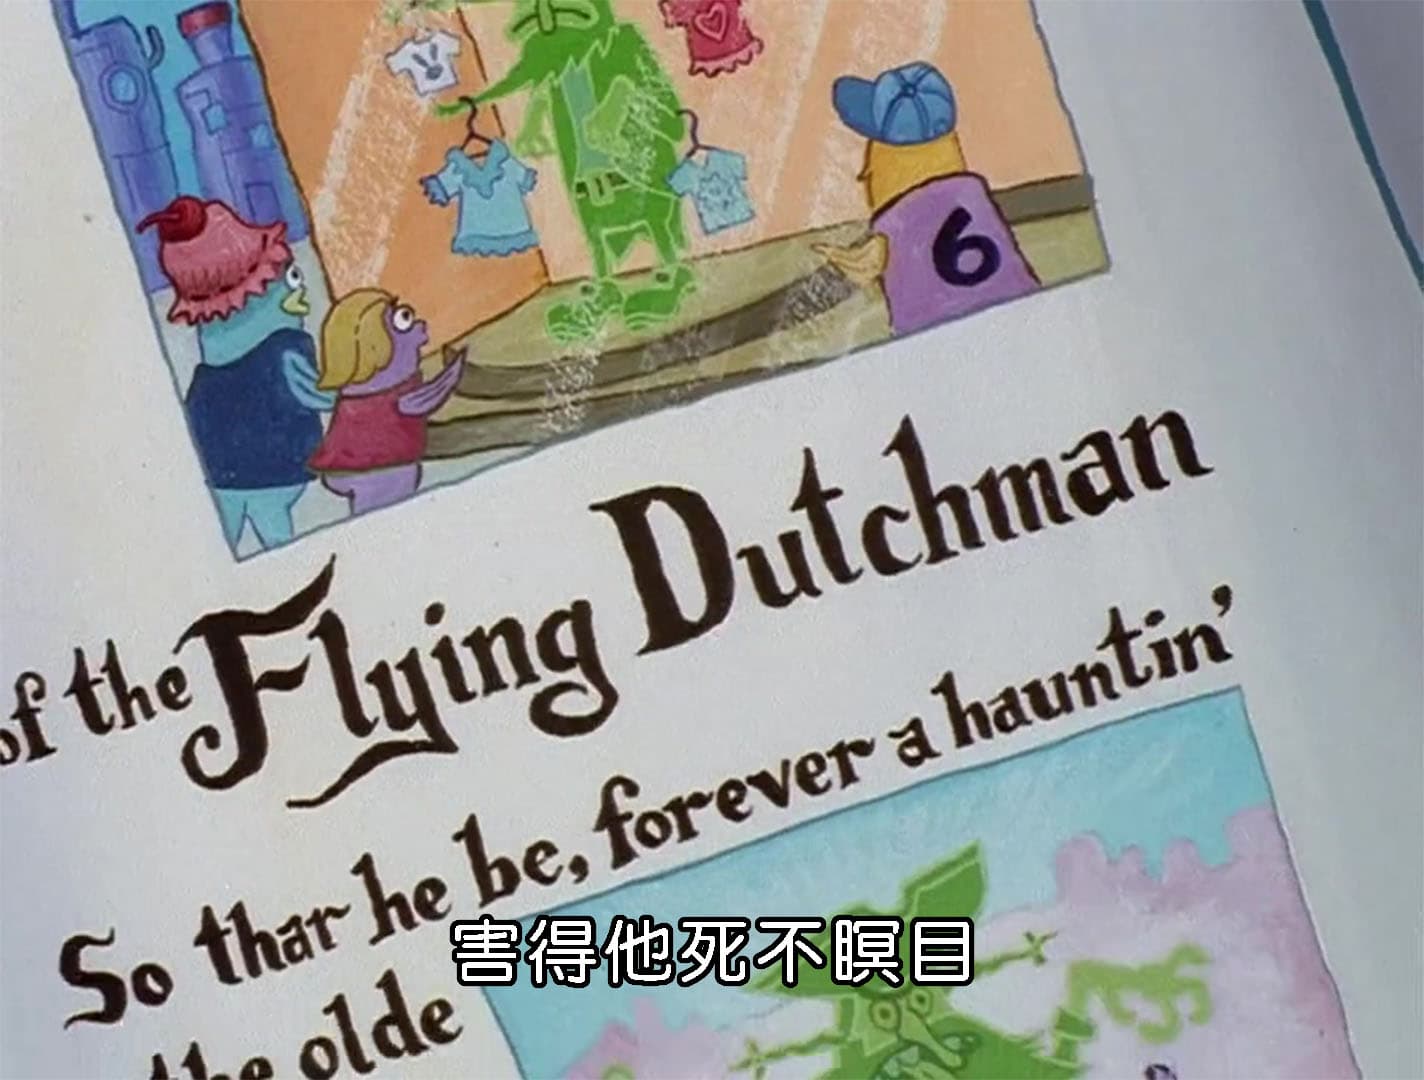 6
of the Flying Dutchman
So thar he be, forever a hauntin'
the olde
害得他死不瞑目